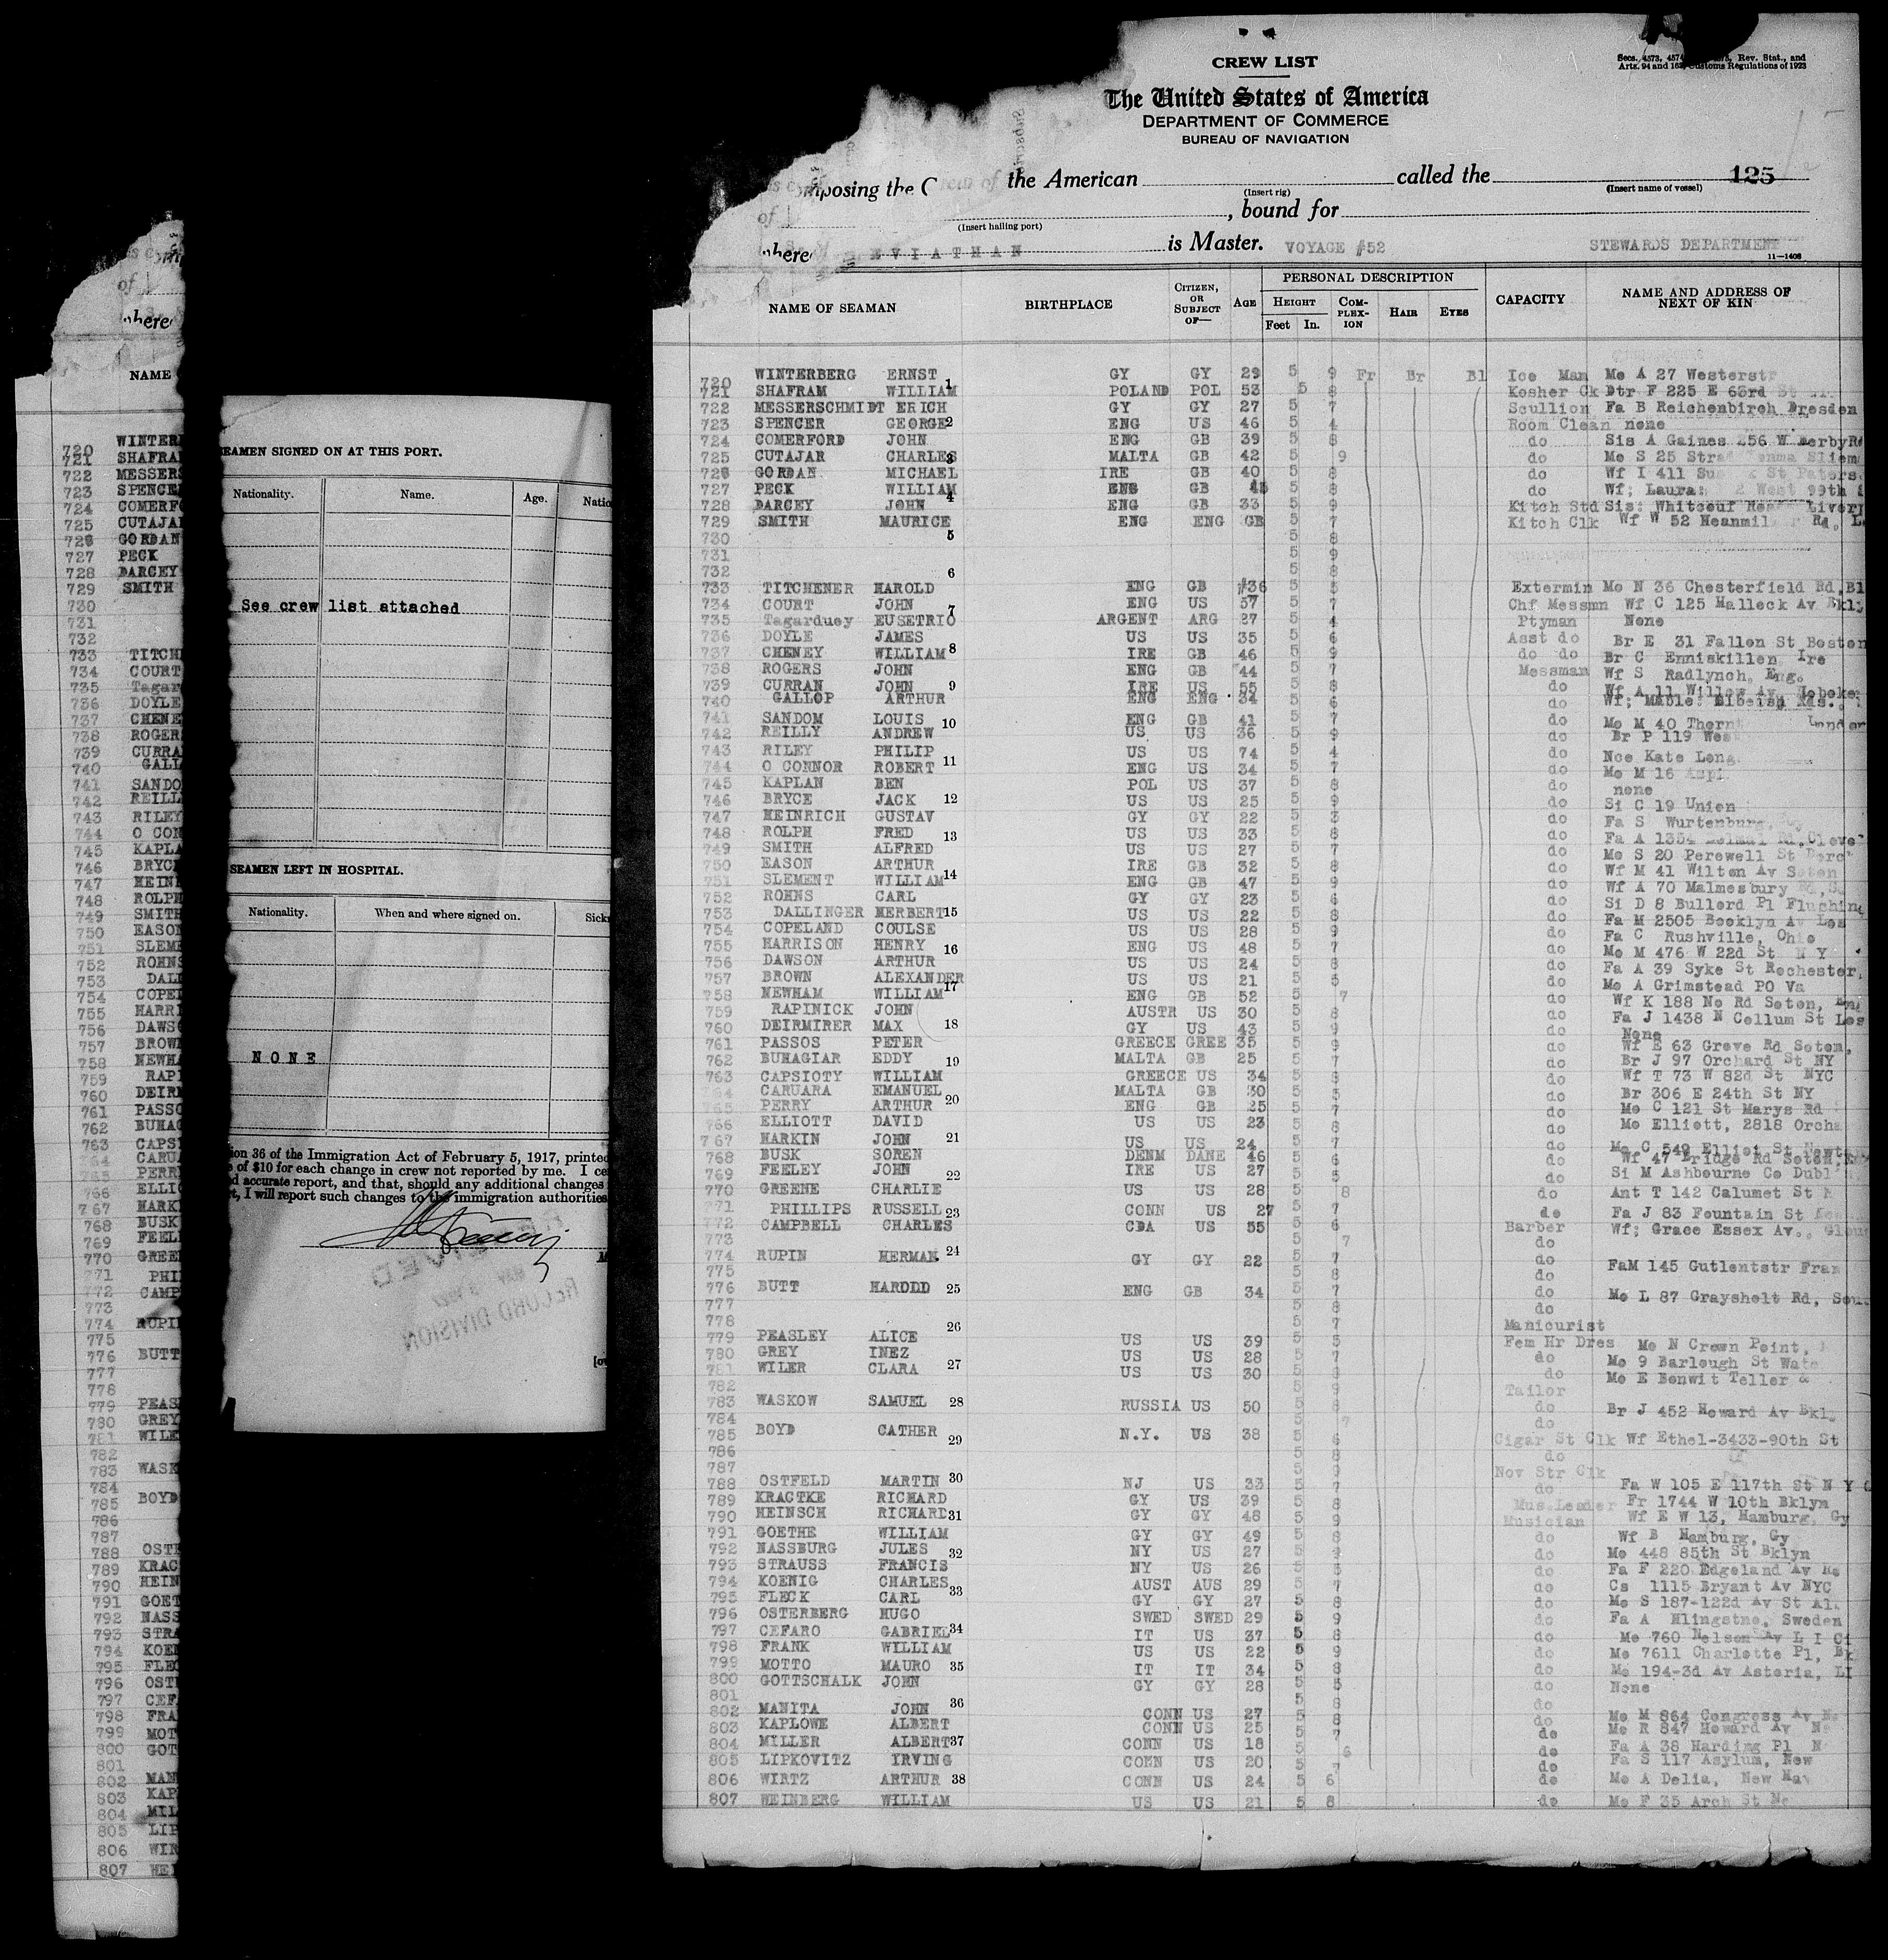 CREW LIST
Secs. 4573, 4574, Rev. Stat., and
Arts. 94 and 16 Customs Regulations of 1923
The United States of America
DEPARTMENT OF COMMERCE
BUREAU OF NAVIGATION
mposing the the American called the 125
(Insert rig) (Insert name of vessel)
of , bound for
(Insert hailing port)
where EVIATHAN is Master. VOYAGE #52 STEWARDS DEPARTMENT
11—1408
NAME OF SEAMAN BIRTHPLACE CITIZEN, OR SUBJECT OF— AGE PERSONAL DESCRIPTION CAPACITY NAME AND ADDRESS OF NEXT OF KIN
HEIGHT Feet In. COMPLEXION HAIR EYES
720 WINTERBERG ERNST 1 GY GY 29 5 9 Fr Br Bl Ice Man Mo A 27 Westerstr
721 SHAFRAM WILLIAM POLAND POL 53 5 8 Kosher Ck Dtr F 225 E 63rd St
722 MESSERSCHMIDT ERICH GY GY 27 5 7 Scullion Fa B Reichenbirch Dresden
723 SPENCER GEORGE 2 ENG US 46 5 4 Room Clean none
724 COMERFORD JOHN ENG GB 39 5 8 do Sis A Gaines 256 W Derby Rd
725 CUTAJAR CHARLES 3 MALTA GB 42 5 9 do Mo S 25 Strad Sliem
726 GORDAN MICHAEL IRE GB 40 5 8 do Wf I 411 St Paters
727 PECK WILLIAM 4 ENG GB 45 5 8 do Wf; Laura: 2 West 99th
728 DARCEY JOHN ENG GB 33 5 9 Kitch Std Sis: Liverp
729 SMITH MAURICE ENG ENG GB 5 7 Kitch Clk Wf W 52 Heanmil Rd, L
730 5 5 8
731 5 9
732 6 5 8
733 TITCHENER HAROLD ENG GB #36 5 5 Extermin Mo N 36 Chesterfield Rd, Bl
734 COURT JOHN 7 ENG US 57 5 7 Chf Messmn Wf C 125 Halleck Av Bkly
735 Tagarduey EUSETRIO ARGENT ARG 27 5 4 Ptyman None
736 DOYLE JAMES US US 35 5 6 Asst do Br E 31 Fallen St Boston
737 CHENEY WILLIAM 8 IRE GB 46 5 9 do do Br C Enniskillen, Ire
738 ROGERS JOHN ENG GB 44 5 7 Messman Wf S Radlynch, Eng.
739 CURRAN JOHN 9 IRE US 55 5 8 do Wf A 11 Willow Av Hoboke
740 GALLOP ARTHUR ENG ENG 34 5 6 do Wf; Mable: Rds.,
741 SANDOM LOUIS 10 ENG GB 41 5 7 do Mo M 40 Thorn London
742 REILLY ANDREW US US 36 5 9 do Br P 119 Wes
743 RILEY PHILIP US US 74 5 4 do Nce Kate Long
744 O CONNOR ROBERT 11 ENG US 34 5 7 do Mo M 16
745 KAPLAN BEN POL US 37 5 8 do none
746 BRYCE JACK 12 US US 25 5 9 do Si C 19 Union
747 HEINRICH GUSTAV GY GY 22 5 3 do Fa S Wurtenburg,
748 ROLPH FRED 13 US US 33 5 8 do Fa A 1354 Rd, Cleve
749 SMITH ALFRED US US 27 5 7 do Mo S 20 Perewell St Dorch
750 EASON ARTHUR IRE GB 32 5 8 do Wf M 41 Wilton Av Soton
751 SLEMENT WILLIAM 14 ENG GB 47 5 9 do Wf A 70 Malmesbury Rd, S
752 ROHNS CARL GY GY 23 5 6 do Si D 8 Bullerd Pl Flushing
753 DALLINGER HERBERT 15 US US 22 5 8 do Fa M 2505 Booklyn Av Los
754 COPELAND COULSE US US 28 5 9 do Fa C Rushville, Ohio
755 HARRISON HENRY 16 ENG US 48 5 7 do Mo M 476 W 22d St N Y
756 DAWSON ARTHUR US US 24 5 8 do Fa A 39 Syke St Rochester,
757 BROWN ALEXANDER 17 US US 21 5 5 do Mo A Grimstead PO Va
758 NEWHAM WILLIAM ENG GB 52 5 7 do Wf K 188 No Rd Soton,
759 RAPINICK JOHN AUSTR US 30 5 8 do Fa J 1438 N Collum St Los
760 DEIRMIRER MAX 18 GY US 43 5 9 do None
761 PASSOS PETER GREECE GREE 35 5 9 do Wf E 63 Grove Rd Soton,
762 BUHAGIAR EDDY 19 MALTA GB 25 5 7 do Br J 97 Orchard St NY
763 CAPSIOTY WILLIAM GREECE US 34 5 8 do Wf T 73 W 82d St NYC
764 CARUARA EMANUEL 20 MALTA GB 30 5 5 do Br 306 E 24th St NY
765 PERRY ARTHUR ENG GB 25 5 7 do Mo C 121 St Marys Rd
766 ELLIOTT DAVID US US 23 5 8 do Mo Elliott, 2818 Orcha
767 HARKIN JOHN 21 US US 24 5 7 do Mo C 549 Elliot St Newt
768 BUSK SOREN DENM DANE 46 5 6 do Wf 47 Bridge Rd Soton,
769 FEELEY JOHN 22 IRE US 27 5 5 do Si M Ashbourne Co Dubl
770 GREENE CHARLIE US US 28 5 8 do Ant T 142 Calumet St
771 PHILLIPS RUSSELL 23 CONN US 27 5 7 do Fa J 83 Fountain St
772 CAMPBELL CHARLES CDA US 55 5 6 Barber Wf; Grace Essex Av.,
773 5 7 do
774 RUPIN HERMAN 24 GY GY 22 5 7 do FaM 145 Gutlentstr Fran
775 5 8 do
776 BUTT HARODD 25 ENG GB 34 5 7 do Mo L 87 Grayshelt Rd, Sou
777 5 8 do
778 26 5 7 Manicurist
779 PEASLEY ALICE US US 39 5 5 Fem Hr Dres Mo N Crown Point,
780 GREY INEZ US US 28 5 7 do Mo 9 Barlough St Wate
781 WILER CLARA 27 US US 30 5 8 do Mo E Bonwit Teller &
782 5 9 Tailor
783 WASKOW SAMUEL 28 RUSSIA US 50 5 8 do Br J 452 Howard Av Bkl
784 5 7 do
785 BOYD CATHER 29 N.Y. US 38 5 6 Cigar St Clk Wf Ethel-3433-90th St
786 5 8 do
787 5 9 Nov Str Clk
788 OSTFELD MARTIN 30 NJ US 33 5 7 do Fa W 105 E 117th St N Y C
789 KRACTKE RICHARD GY US 39 5 8 Mus.Leader Fr 1744 W 10th Bklyn
790 HEINSCH RICHARD 31 GY GY 48 5 9 Musician Wf E W 13, Hamburg, Gy
791 GOETHE WILLIAM GY GY 49 5 8 do Wf B Hamburg, Gy
792 NASSBURG JULES 32 NY US 27 5 do Mo 448 85th St Bklyn
793 STRAUSS FRANCIS NY US 26 5 5 do Fa F 220 Edgeland Av
794 KOENIG CHARLES 33 AUST AUS 29 5 7 do Cs 1115 Bryant Av NYC
795 FLECK CARL GY GY 27 5 8 do Mo S 187-122d Av St Al.
796 OSTERBERG HUGO SWED SWED 29 5 9 do Fa A Hlingstne, Sweden
797 CEFARO GABRIEL 34 IT US 37 5 8 do Mo 760 Nelson Av L I Ci
798 FRANK WILLIAM US US 22 5 9 do Mo 7611 Charlotte Pl, Bk
799 MOTTO MAURO 35 IT IT 34 5 8 do Mo 194-3d Av Astoria, LI
800 GOTTSCHALK JOHN GY GY 28 5 5 do None
801 36 5 8 do
802 MANITA JOHN CONN US 27 5 8 do Mo M 864 Congress Av N
803 KAPLOWE ALBERT CONN US 25 5 7 do Mo R 847 Howard Av Ne
804 MILLER ALBERT 37 CONN US 18 5 6 do Fa A 38 Harding Pl N
805 LIPKOVITZ IRVING CONN US 20 5 7 do Fa S 117 Asylum, New
806 WIRTZ ARTHUR 38 CONN US 24 5 6 do Mo A Delia, New Hav
807 WEINBERG WILLIAM US US 21 5 8 do Mo F 35 Arch St Ne
SEAMEN SIGNED ON AT THIS PORT.
Nationality. Name. Age. Natio
See crew list attached
SEAMEN LEFT IN HOSPITAL.
Nationality. When and where signed on. Sick
NONE
ion 36 of the Immigration Act of February 5, 1917, printed
of $10 for each change in crew not reported by me. I ce
d accurate report, and that, should any additional changes
t, I will report such changes to the immigration authorities
RECEIVED
RECORD DIVISION
of
where
NAME
720 WINTER
721 SHAFRA
722 MESSERS
723 SPENCE
724 COMERFO
725 CUTAJA
726 GORDAN
727 PECK
728 DARCEY
729 SMITH
730
731
732
733 TITCH
734 COURT
735 Tagar
736 DOYLE
737 CHENE
738 ROGER
739 CURRA
740 GALL
741 SANDO
742 REILL
743 RILEY
744 O CON
745 KAPLA
746 BRYC
747 HEIN
748 ROLPH
749 SMITH
750 EASON
751 SLEME
752 ROHNS
753 DALL
754 COPEL
755 HARRI
756 DAWSO
757 BROWN
758 NEWHA
759 RAPI
760 DEIRM
761 PASSO
762 BUHAG
763 CAPSI
764 CARUA
765 PERRY
766 ELLIO
767 HARKI
768 BUSK
769 FEEL
770 GREE
771 PHI
772 CAMP
773
774 RUPI
775
776 BUTT
777
778
779 PEAS
780 GREY
781 WILE
782
783 WASK
784
785 BOYD
786
787
788 OSTF
789 KRAC
790 HEIN
791 GOET
792 NASS
793 STRA
794 KOEN
795 FLEC
796 OSTE
797 CEF
798 FRA
799 MOT
800 GOT
801
802 MAN
803 KAP
804 MIL
805 LIP
806 WIR
807 WEI